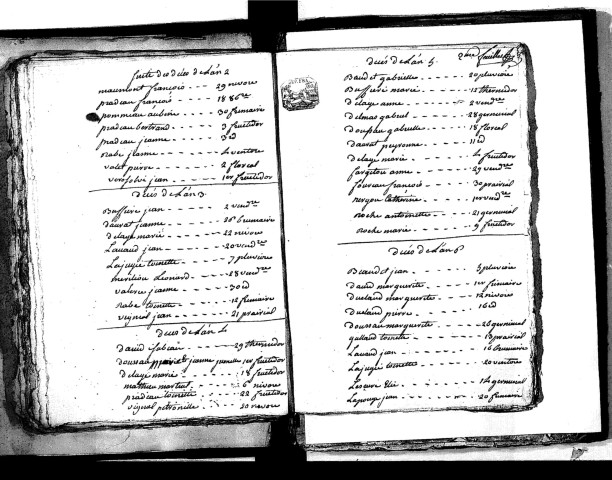 Suite des décès de l'an 2
maumont françois - - - 29 nivose
pradeau françois - - - 18
pommeau aubin - - - 30 frimaire
pradeau bertrand - - - 3 fructidor
pradeau jeanne - - - 3 id
rabe jeanne - - - 4 ventose
valet pierre - - - 2 floreal
jean - - - 1er fructidor
Décès de l'an 3.
Bussiere jean - - - 2 vendre
daurat jeanne - - - 26 brumaire
delaye marie - - - 22 nivose
Lauaud jean - - - 20 vendre
Lajugie toinette - - - 7 pluviose
Leonard - - - 28 vendre
valerie jeanne - - - 30 id
Rabe toinette - - - 12 frimaire
veyriol jean - - - 21 prairial
Décès de l'an 4
david - - - 29 thermidor
doussau jeanne 1er fructidor
delaye marie - - - 18 fructidor
mathieu martial - - - 6 nivose
pradeau toinette - - - 22 fructidor
petronelle - - - 20 nivose
Décès de l'an 5. 2eme feuillet
Baudet gabrielle - - - 20 pluviose
Bussiere marie - - - 13 thermidor
Delaye anne - - - 2 vendre
Delmas gabriel - - - 28 germinal
Doussau gabrielle - - - 18 floreal
Daurat peyronne - - - 11 id
Delaye marie - - - 4 fructidor
anne - - - 29 vendre
françois - - - 30 prairial
catherine - - - 1er vendre
Roche antoinette - - - 21 germinal
Roche marie - - - 9 fructidor
Décès de l'an 6
Beaudet jean - - - 5 pluviose
David marguerite - - - 1er frimaire
marguerite - - - 12 nivose
pierre - - - 16 id
Doussau marguerite - - - 26 germinal
galland toinette - - - 13 prairial
Lauaud jean - - - 16 brumaire
Lajugie toinette - - - 20 ventose
Lescure Elie - - - 14 germinal
Lapouge jean - - - 20 frimaire